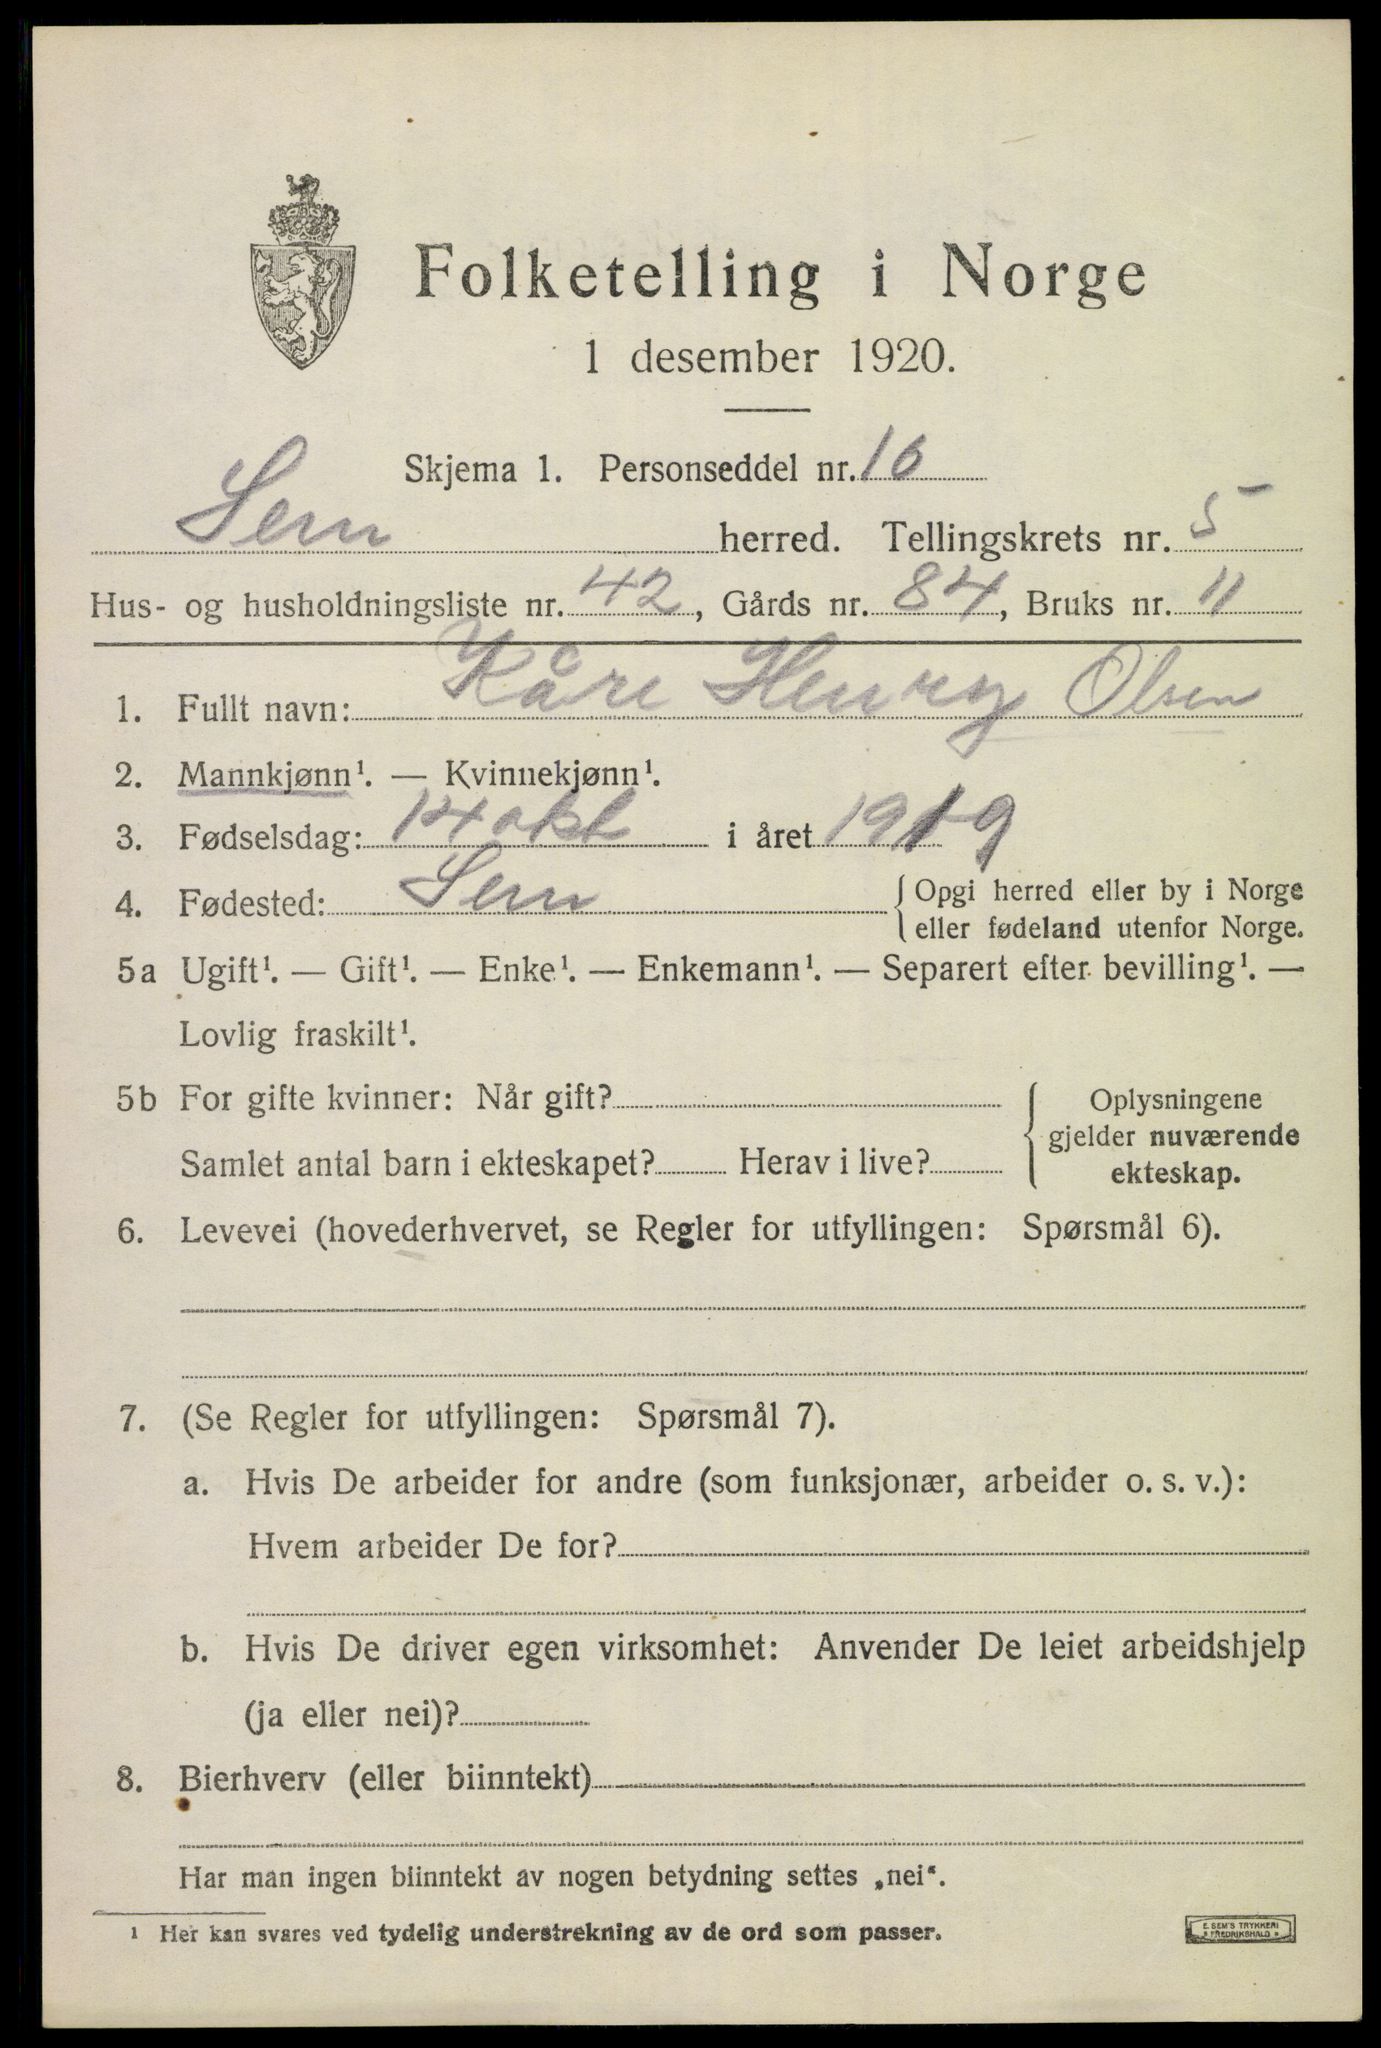 Folketelling i Norge
1 desember 1920.
Skjema 1. Personseddel nr. 16
Sem herred. Tellingskrets nr. 5
Hus- og husholdningsliste nr. 42, Gårds nr. 84, Bruks nr. 11
1. Fullt navn: Kåre Henry Olsen
2. Mannkjønn¹. — Kvinnekjønn¹.
3. Fødselsdag: 14 okt i året 1919
4. Fødested: Sem { Opgi herred eller by i Norge
eller fødeland utenfor Norge.
5a Ugift¹. — Gift¹. — Enke¹. — Enkemann¹. — Separert efter bevilling¹. —
Lovlig fraskilt¹.
5b For gifte kvinner: Når gift? { Oplysningene
gjelder nuværende
Samlet antal barn i ekteskapet? Herav i live? ekteskap.
6. Levevei (hovederhvervet, se Regler for utfyllingen: Spørsmål 6).
7. (Se Regler for utfyllingen: Spørsmål 7).
a. Hvis De arbeider for andre (som funksjonær, arbeider o. s. v.):
Hvem arbeider De for?
b. Hvis De driver egen virksomhet: Anvender De leiet arbeidshjelp
(ja eller nei)?
8. Bierhverv (eller biinntekt)
Har man ingen biinntekt av nogen betydning settes „nei“.
¹ Her kan svares ved tydelig understrekning av de ord som passer.
E. SEM'S TRYKKERI
» FREDRIKSHALD »